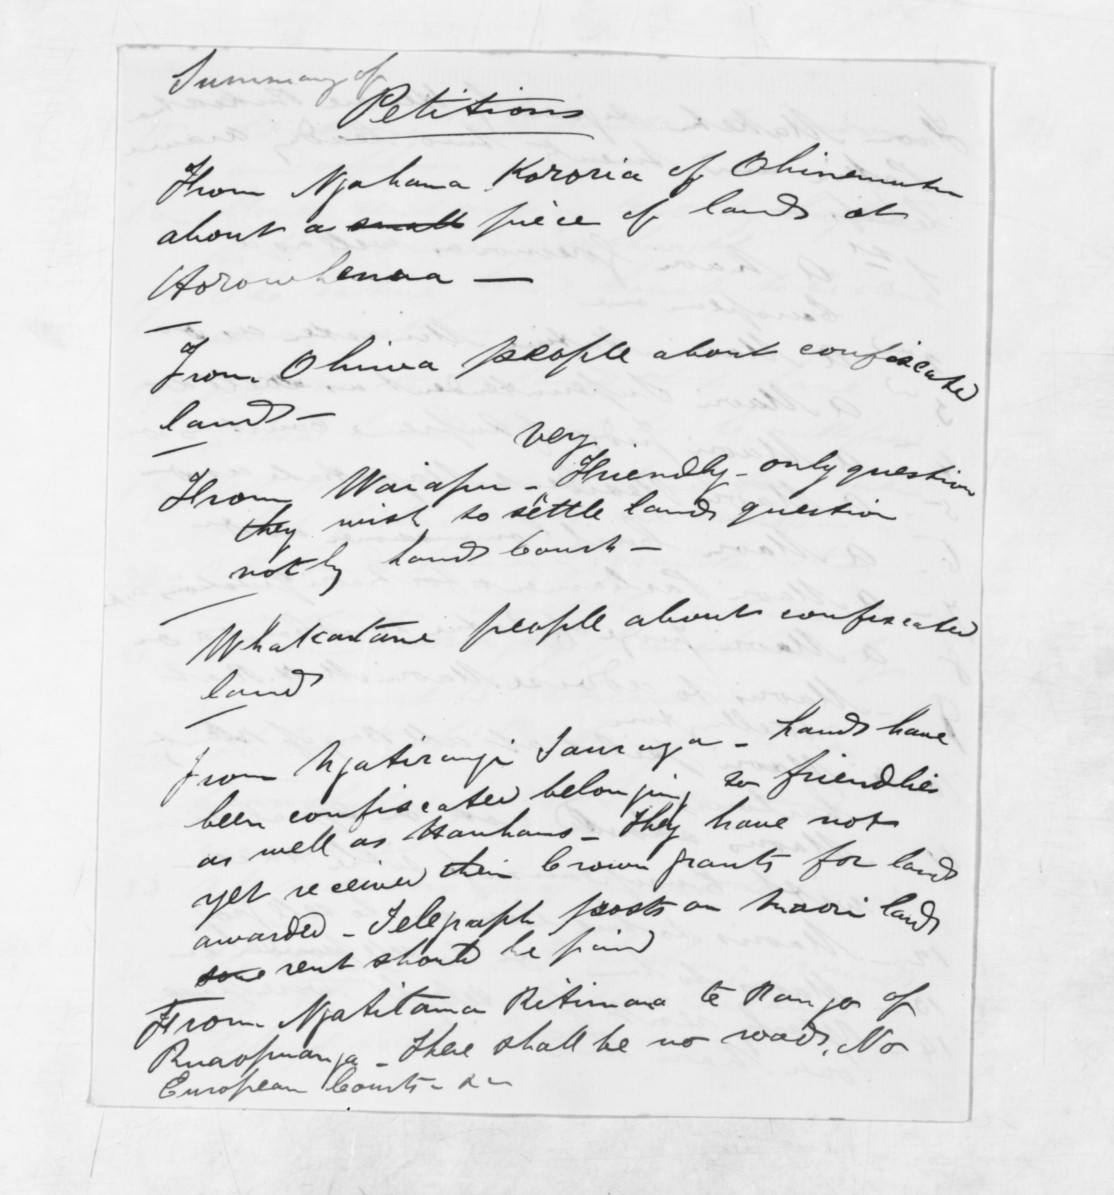 Summary of
Petitions
From Ngahana Kororia of Ohinemutu
about a small piece of land at
Horowhenua —
From Ohiwa people about confiscated
land —
very
From Waiapu - Friendly - only question
they wish to settle lands question
not by Lands Court —
Whakatane people about confiscated
land
From Ngatirangi Tauranga - Lands have
been confiscated belonging to friendlies
as well as Hauhaus - They have not
yet received their Crown grants for land
awarded - Telegraph posts on Maori land
some rent should be paid
From Ngatitama Ritimana te Rango of
Ruaopuanga - There shall be no roads. No
European Courts - &c